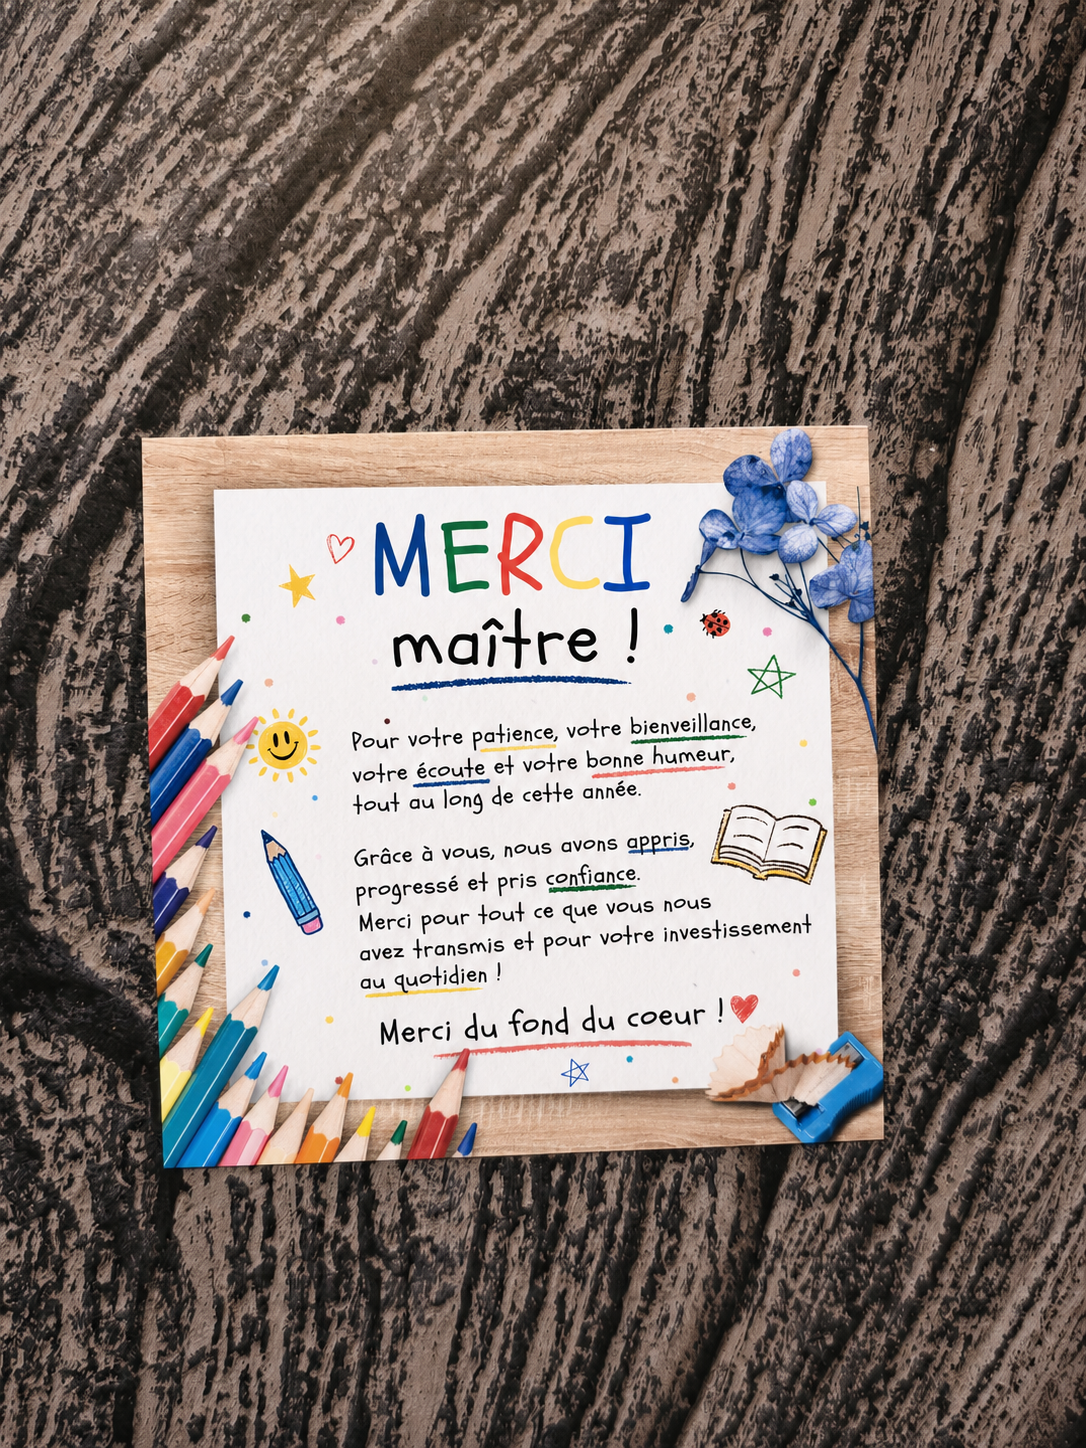 MERCI
maître !
Pour votre patience, votre bienveillance,
votre écoute et votre bonne humeur,
tout au long de cette année.
Grâce à vous, nous avons appris,
progressé et pris confiance.
Merci pour tout ce que vous nous
avez transmis et pour votre investissement
au quotidien !
Merci du fond du coeur !